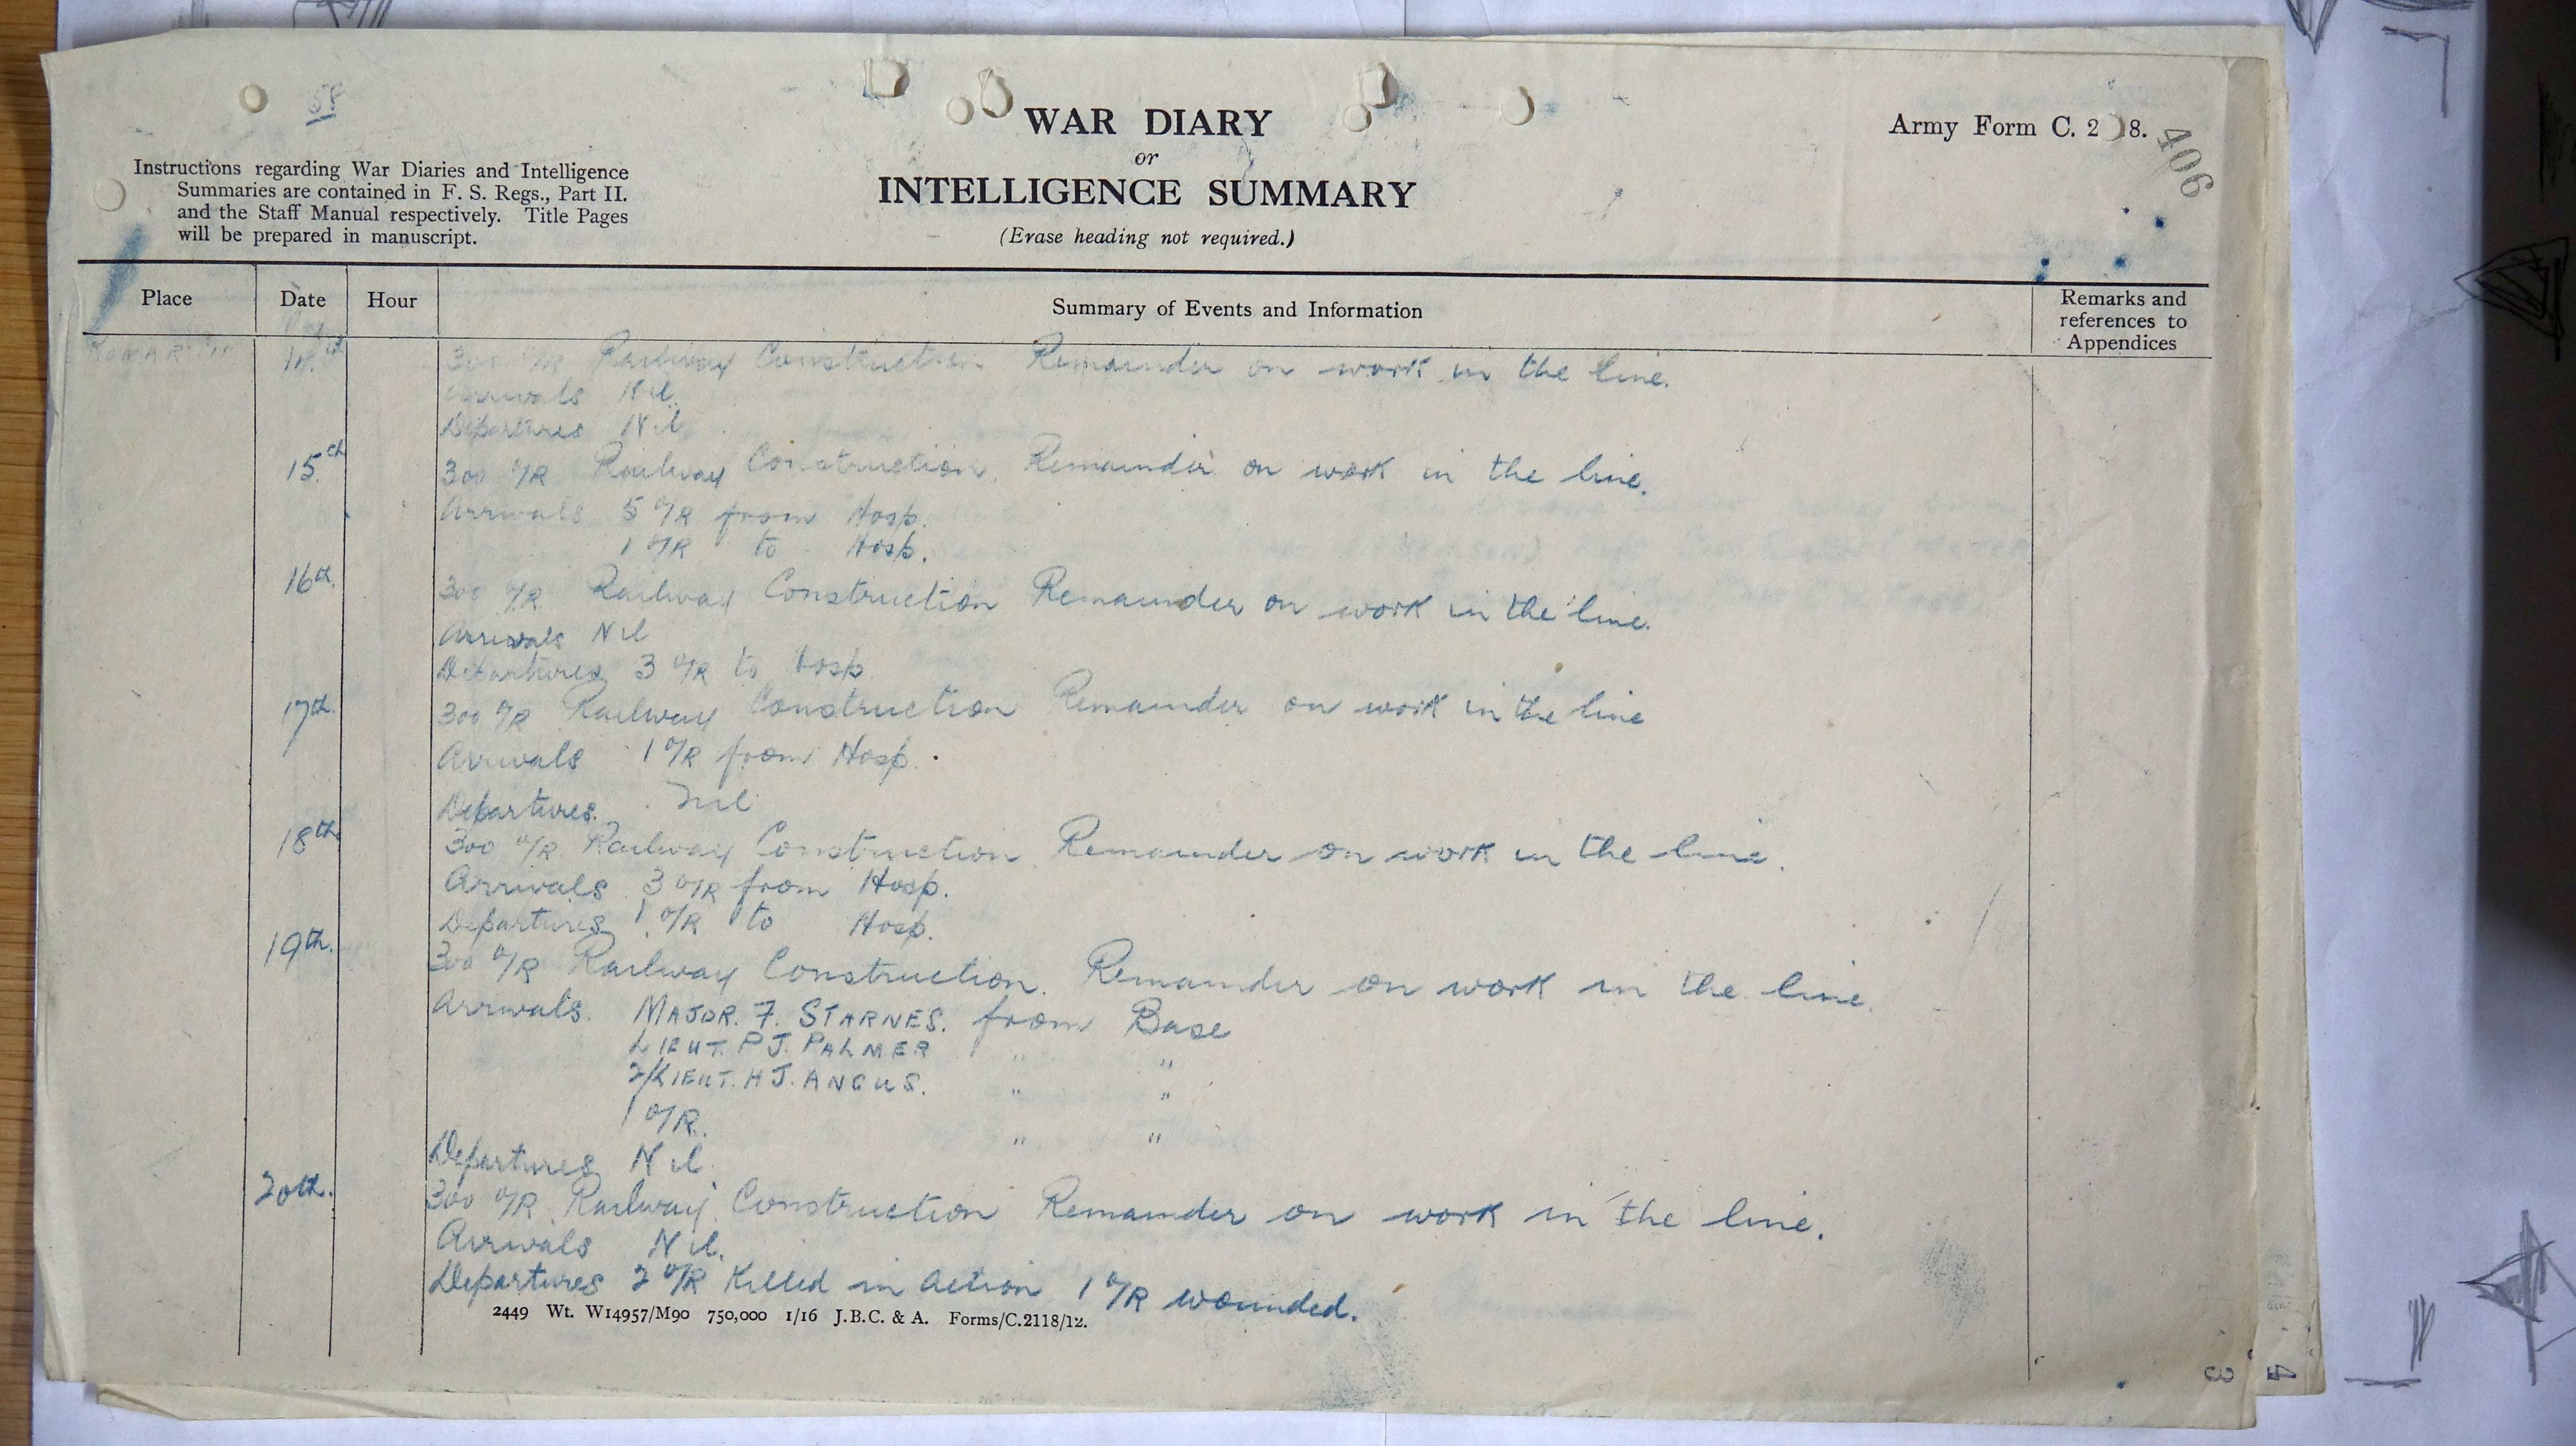 WAR DIARY
or
INTELLIGENCE SUMMARY
(Erase heading not required.)
Army Form C. 2 8.
406
Instructions regarding War Diaries and Intelligence
Summaries are contained in F. S. Regs., Part II.
and the Staff Manual respectively. Title Pages
will be prepared in manuscript.
Place Date Hour Summary of Events and Information Remarks and references to Appendices
300 O/R Railway Construction Remainder on work in the line.
Arrivals Nil
Departures Nil
15th 300 O/R Railway Construction. Remainder on work in the line.
Arrivals 5 O/R from Hosp.
1 O/R to Hosp.
16th. 300 O/R Railway Construction Remainder on work in the line.
Arrivals Nil
Departures 3 O/R to Hosp
17th. 300 O/R Railway Construction Remainder on work in the line
Arrivals 1 O/R from Hosp.
Departures. Nil
18th 300 O/R Railway Construction. Remainder on work in the line.
Arrivals 3 O/R from Hosp.
Departures 1 O/R to Hosp.
19th. 300 O/R Railway Construction. Remainder on work in the line.
Arrivals. MAJOR. F. STARNES. from Base
LIEUT. P.J. PALMER " "
2/LIEUT. H J. ANGUS. " "
1 O/R. " "
Departures Nil
20th. 300 O/R Railway Construction Remainder on work in the line.
Arrivals Nil.
Departures 2 O/R Killed in Action 1 O/R wounded.
2449 Wt. W14957/M90 750,000 1/16 J.B.C. & A. Forms/C.2118/12.
3
4